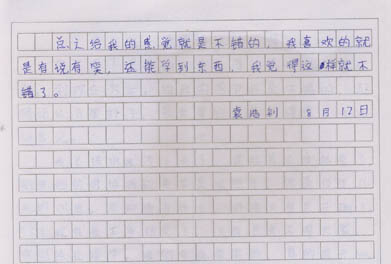 总之给我的感觉就是不错的，我喜欢的就
是有说有笑，还能学到东西、我觉得这样就不
错了。
袁浩钊 8月12日